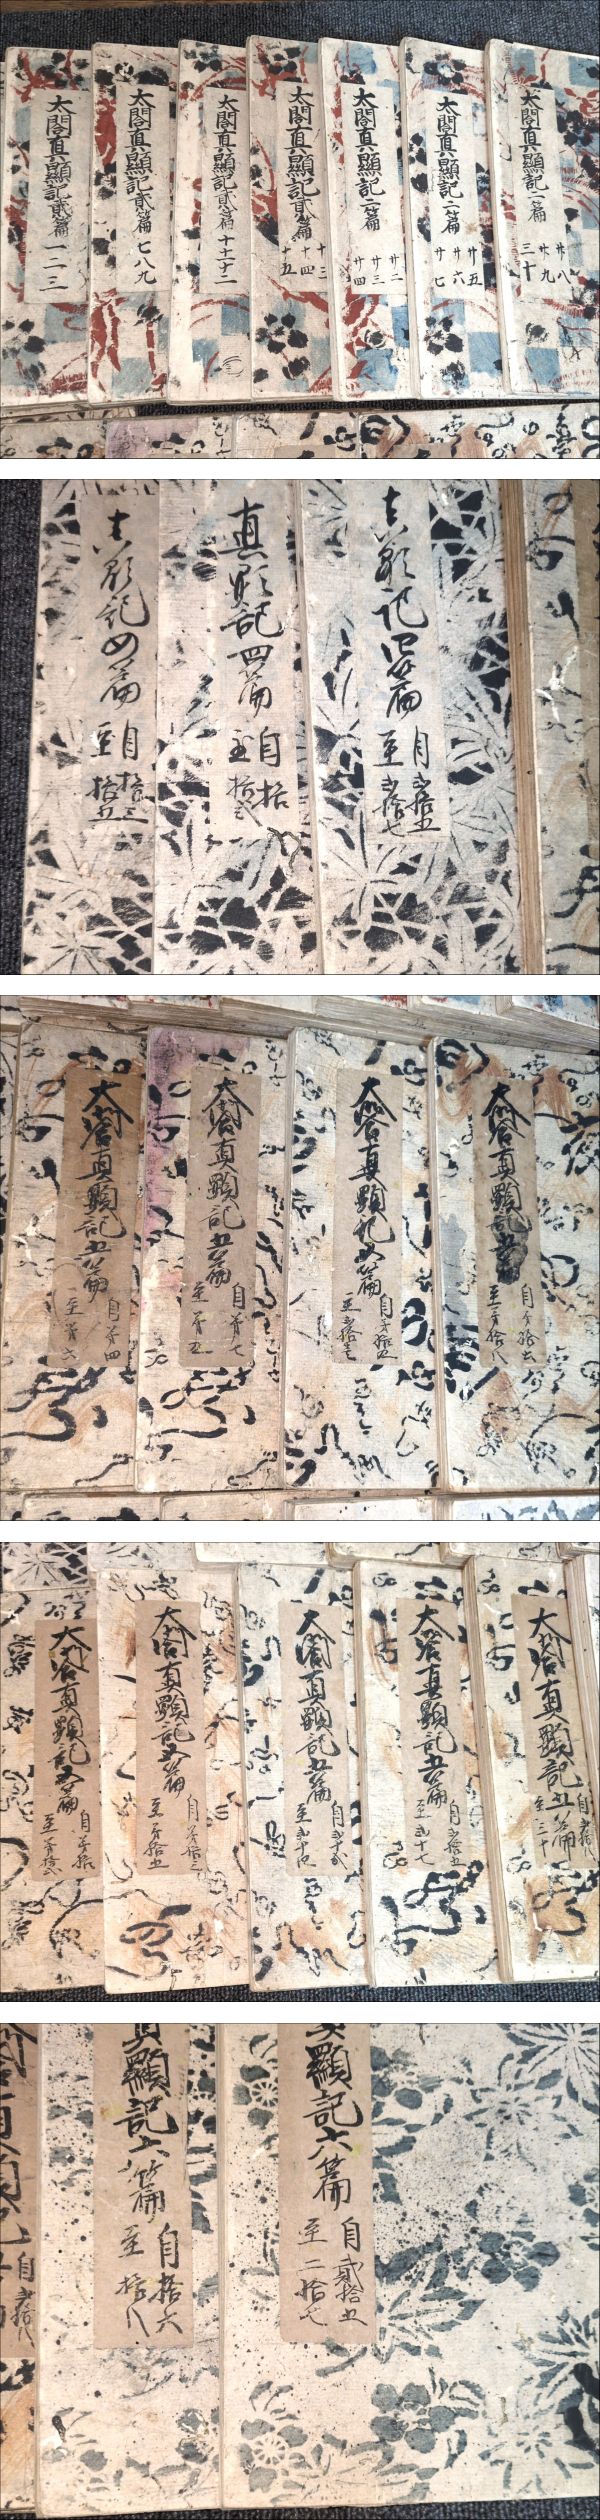 太閤真顕記貳篇 一二三
太閤真顕記貳篇 七八九
太閤真顕記貳篇 十十十二
太閤真顕記貳篇 十三
十四
十五
太閤真顕記二篇 廿二
廿三
廿四
太閤真顕記二篇 廿五
廿六
廿七
太閤真顕記二篇 廿八
廿九
三十
真顕記四篇 自拾三
至拾五
真顕記四篇 自拾
至拾弐
真顕記四篇 自弐拾五
至弐拾七
太閤真顕記五篇 自第四
至第六
太閤真顕記五篇 自第七
至第九
太閤真顕記五篇
太閤真顕記五篇 自第拾六
至第拾八
太閤真顕記五篇 自第拾
至第拾弐
太閤真顕記五篇 自第拾三
至第拾五
太閤真顕記五篇
至弐十四
太閤真顕記五篇 自弐拾五
至弐十七
太閤真顕記五篇 自弐拾八
至三十
自弐拾八
真顯記六篇 自拾六
至拾八
真顯記六篇 自貳拾五
至二拾七